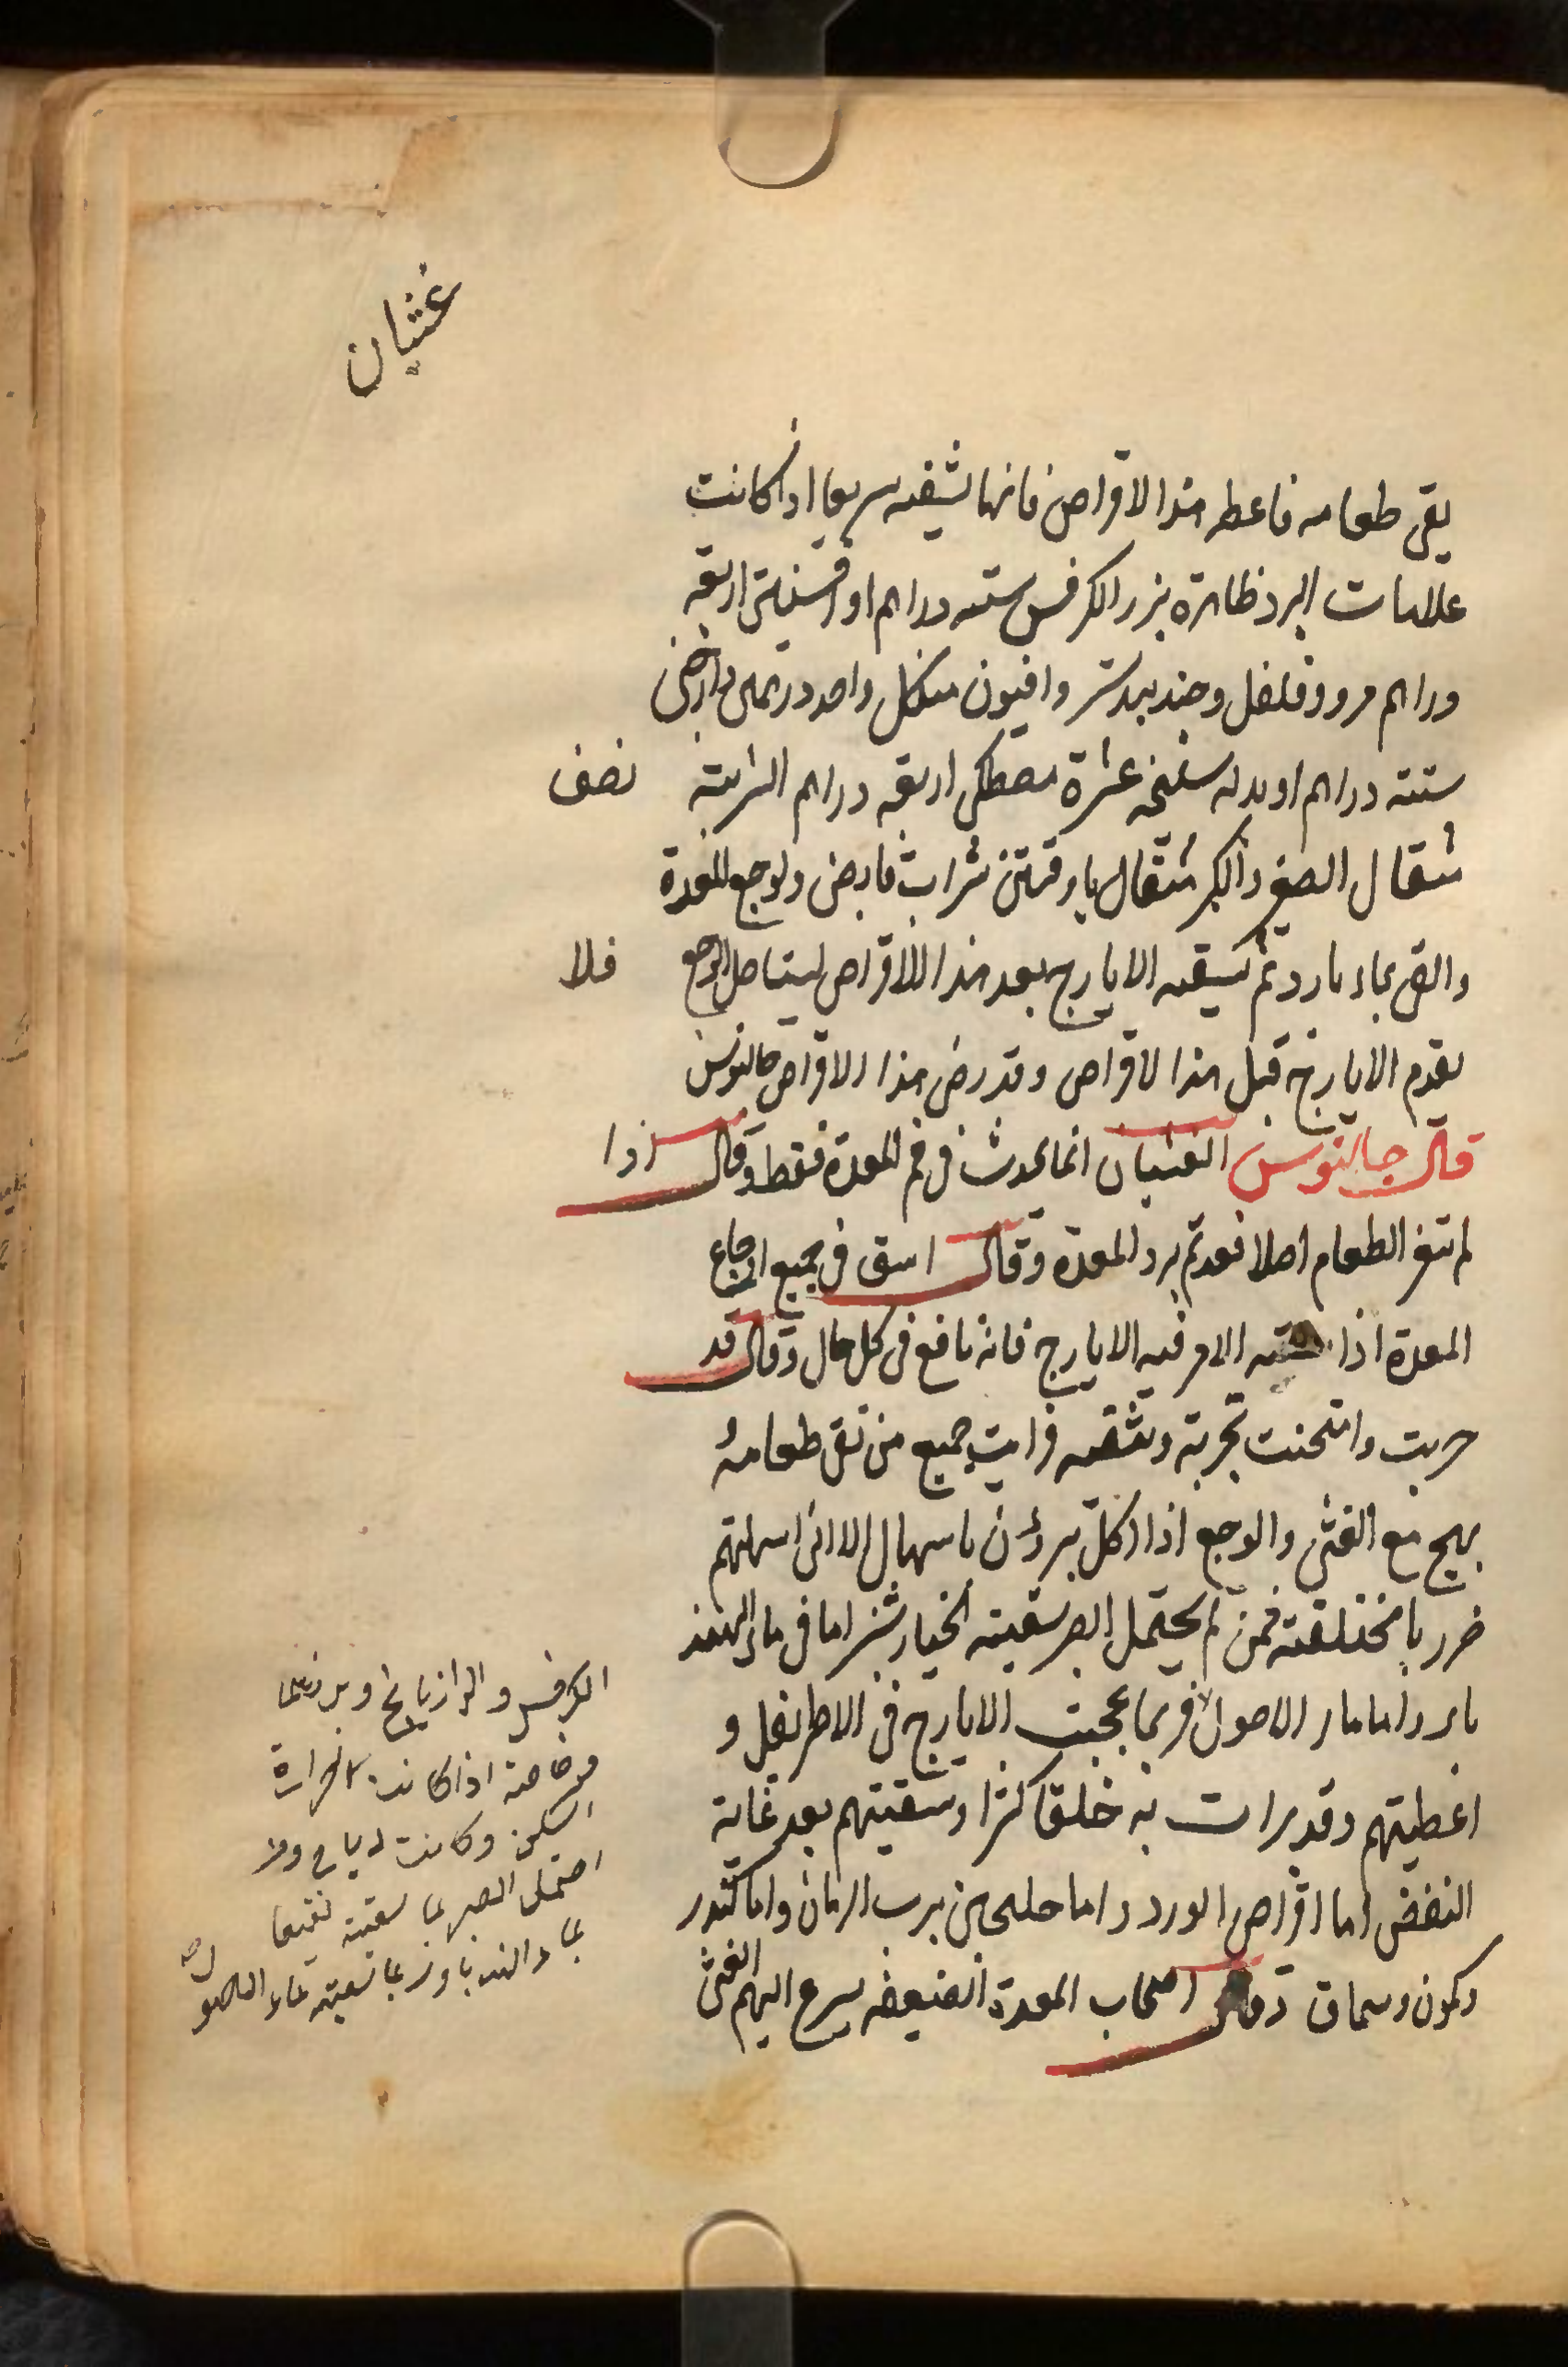 غثيان
يقى طعامه فاعطه هذا الاقراص فانها تشفيه سريعا اذا كانت
علامات البرد ظاهرة بزر الكرفس ستة دراهم او افسنتين اربعة
دراهم مر وفلفل وجندبيدستر وافيون من كل واحد درهمين دارصيني
ستة دراهم او بدله سليخه عشرة مصطكى اربعة دراهم الشربة نصف
مثقال الصغير والكبر مثقال باوقيتين شراب قابض ولوجع المعدة
والقى بماء بارد ثم تسقيه الايارج بعد هذا الاقراص ليستاصل الوجع فلا
يقدم الايارج قبل هذا الاقراص وقد رض هذا الاقراص جالنوس
قال جالنوس الغثيان انما يحدث فى فم المعدة فقط وقال اذا
لم تتغير الطعام اصلا فعد تم برد المعدة وقال اسق فى جميع اوجاع
المعدة اذا الامر فيه الايارج فانه نافع فى كل حال وقال قد
جربت وامتحنت تجربة وثيقه فرايت جميع من تقى طعامه
يهيج مع الغثى والوجع اذا اكل يبرؤن باسهال الا انى اسهلتهم
ضروبا مختلفة فمن لم يحتمل الصبر سقيته الخيارشنبر اما فى ماء الهند
با بر واما ماء الاصول فربما عجنت الايارج فى الاطريفل و
اعطيتهم وقد برات به خلقا كثيرا وسقيتهم بعد غاية
النفض اما اقراص الورد واما حلنجبين برب الرمان واما كندر
وكمون وسماق وقال اصحاب المعدة الضعيفه يسرع اليهم الغثى
الكرفس والرازيانج وبزرهما
وخاصة اذا كانت الحرارة
اسكن وكانت رياح ولا
احتمل الصبر بما سقيته نقيعا
بماء الهندبا وربما سقيته بماء الاصول